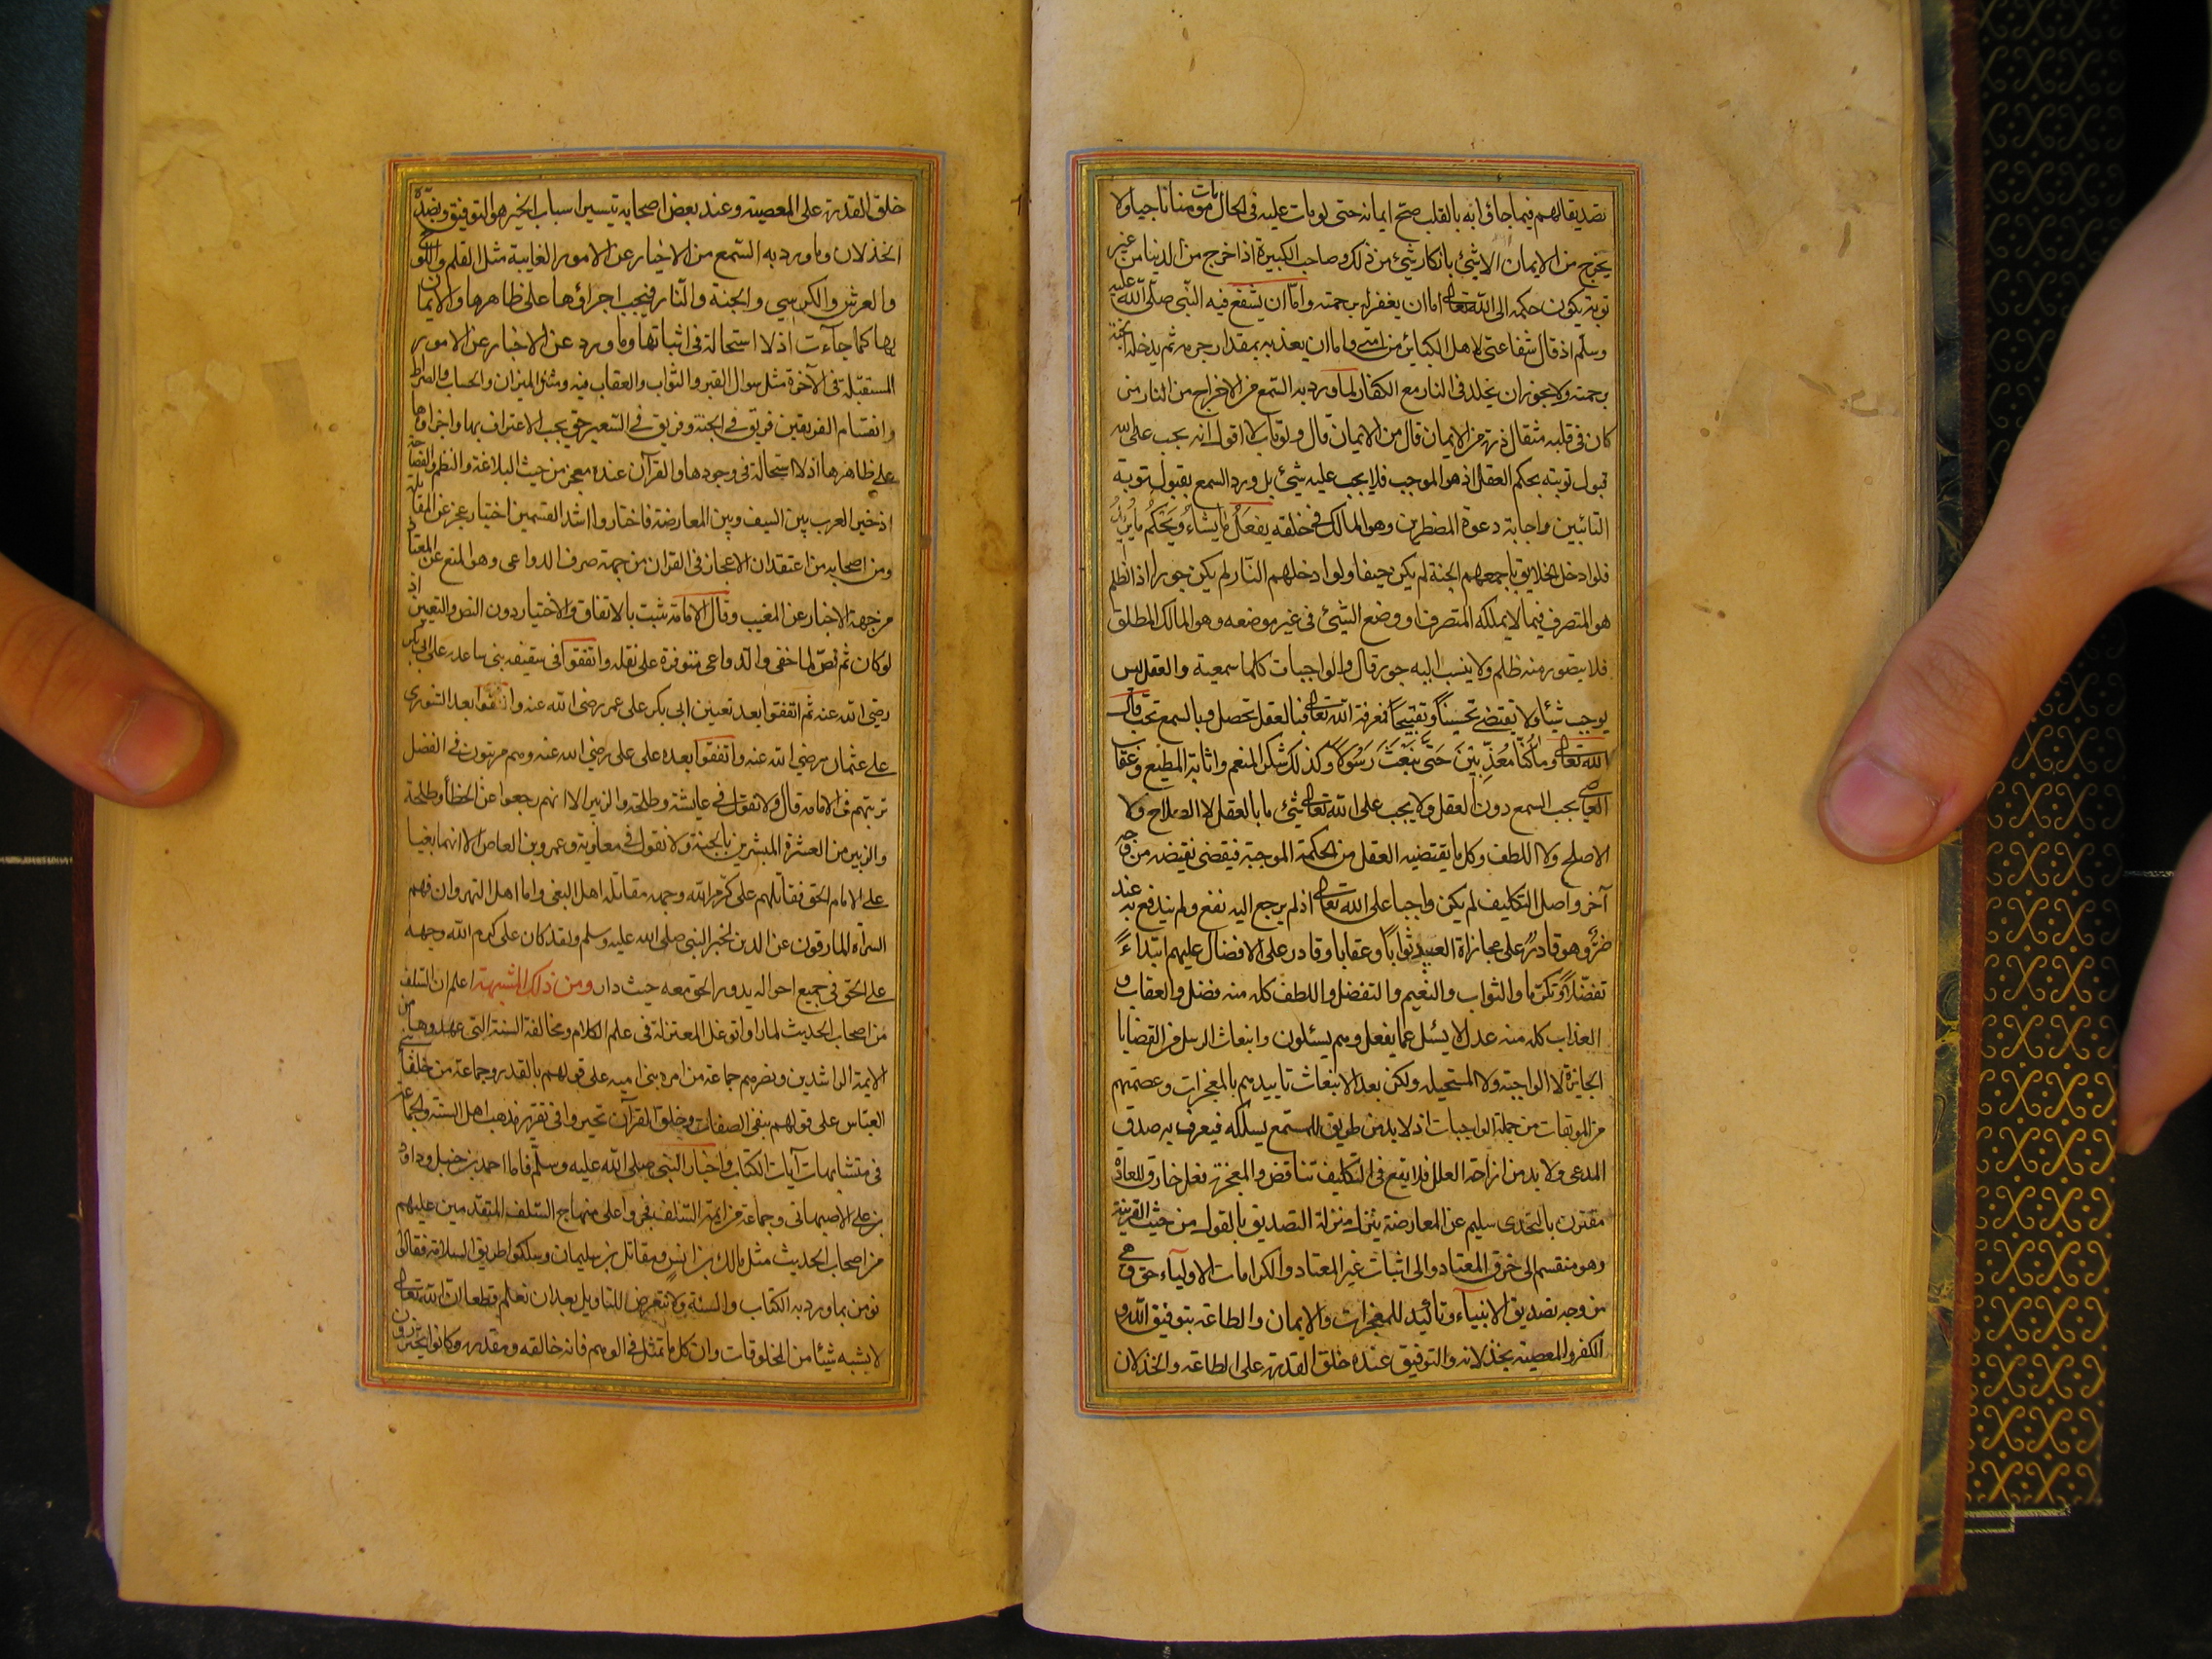 تصديقا لهم فيما جاؤا به بالقلب صح ايمانه حتى لو مات عليه فى الحال مات مومنا ناجيا ولا
يخرج من الايمان الا بشئ بانكار شئ من ذلك وصاحب الكبيرة اذا خرج من الدنيا من غير
توبة يكون حكمه الى الله تعالى اما ان يغفر له برحمته واما ان يشفع فيه النبى صلى الله عليه
وسلم اذ قال شفاعتى لاهل الكبائر من امتى واما ان يعذبه بمقدار جرمه ثم يدخله الجنة
برحمته ولا يجوز ان يخلد فى النار مع الكفار لما ورد به السمع من الاخراج من النار من
كان فى قلبه مثقال ذرة من الايمان قال من الايمان قال ولو تاب لا اقول انه يجب على الله
قبول توبته بحكم العقل اذ هو الموجب فلا يجب عليه شئ بل ورد السمع بقبول توبة
التائبين واجابة دعوة المضطرين وهو المالك فى خلقه يفعل ما يشاء ويحكم ما يريد
فلو ادخل الخلايق باجمعهم الجنة لم يكن حيفا ولو ادخلهم النار لم يكن جورا اذ الظلم
هو المتصرف فيما لا يملكه المتصرف او وضع الشئ فى غير موضعه وهو المالك المطلق
فلا يتصور منه ظلم ولا ينسب اليه جور قال والواجبات كلها سمعية والعقل ليس
يوجب شيئا ولا يقتضى تحسينا وتقبيحا فمعرفة الله تعالى بالعقل تحصل وبالسمع تجب قال
الله تعالى وما كنا معذبين حتى نبعث رسولا وكذلك شكر المنعم واثابة المطيع وعقاب
العاصى يجب السمع دون العقل ولا يجب على الله تعالى شئ ما بالعقل لا الصلاح ولا
الاصلح ولا اللطف وكل ما يقتضيه العقل من الحكمة الموجبة فيقضى نقيضه من وجه
آخر واصل التكليف لم يكن واجبا على الله تعالى اذ لم يرجع اليه نفع ولم يندفع به عنه
ضر وهو قادر على مجازاة العبيد ثوابا وعقابا وقادر على الافضال عليهم ابتداء
تفضلا وتكرما والثواب والنعيم والتفضل واللطف كله منه فضل والعقاب و
العذاب كله منه عدل لا يسئل عما يفعل وهم يسئلون وانبعاث الرسل من القضايا
الجايزة لا الواجبة ولا المستحيله ولكن بعد الانبعاث تاييدهم بالمعجزات وعصمتهم
من الموبقات من جملة الواجبات اذ لا بد من طريق للمستمع يسلكه فيعرف به صدق
المدعى ولا بد من ازاحة العلل فلا يقع فى التكليف تناقض والمعجزة فعل خارق للعادة
مقترن بالتحدى سليم عن المعارضة ينزل منزلة التصديق بالقول من حيث القرينة
وهو منقسم الى خرق المعتاد والى اثبات غير المعتاد والكرامات الاولياء حق وهى
من وجه تصديق الانبياء وتأكيد للمعجزات والايمان والطاعة بتوفيق الله و
الكفر والمعصية بخذلانه والتوفيق عنده خلق القدرة على الطاعة والخذلان
خلق القدرة على المعصية وعند بعض اصحابه تيسير اسباب الخير هو التوفيق وبضده
الخذلان وما ورد به السمع من الاخبار عن الامور الغايبة مثل القلم واللوح
والعرش والكرسي والجنة والنار فيجب اجراؤها على ظاهرها والايمان
بها كما جآءت اذ لا استحالة فى اثباتها وما ورد عن الاخبار عن الامور
المستقبلة فى الآخرة مثل سوال القبر والثواب والعقاب فيه ومثل الميزان والحساب والصراط
وانقسام الفريقين فريق فى الجنة وفريق فى السعير حق يجب الاعتراف بها واجراوها
على ظاهرها اذ لا استحالة فى وجودها والقرآن عنده معجز من حيث البلاغة والنظم والفصاحة
اذ خير العرب بين السيف وبين المعارضة فاختاروا اشد القسمين اختيار عجز عن المقابلة
ومن اصحابه من اعتقد ان الاعجاز فى القران من جهة صرف الدواعى وهو المنع عن المعتاد
من جهة الاخبار عن الغيب وقال الامامة تثبت بالاتفاق والاختيار دون النص والتعيين اذ
لو كان ثم نص لما خفى والدواعى متوفرة على نقله واتفقوا فى سقيفه بنى ساعده على ابى بكر
رضى الله عنه ثم اتفقوا بعد تعيين ابى بكر على عمر رضى الله عنه واتفقوا بعد الشورى
على عثمان رضى الله عنه واتفقوا بعده على على رضى الله عنه وهم مرتبون فى الفضل
ترتبهم فى الامامه قال ولا نقول فى عايشة وطلحة والزبير الا انهم رجعوا عن الخطأ وطلحة
والزبير من العشرة المبشرين بالجنة ولا نقول فى معاوية وعمرو بن العاص الا انهما بغيا
على الامام الحق فقاتلهم على كرم الله وجهه مقاتلة اهل البغى واما اهل النهروان فهم
الشراة المارقون عن الدين لخبر النبى صلى الله عليه وسلم ولقد كان على كرم الله وجهه
على الحق فى جميع احواله يدور الحق معه حيث دار ومن ذلك المشبهة اعلم ان السلف
من اصحاب الحديث لما راوا توغل المعتزلة فى علم الكلام ومخالفة السنة التى عهدوها من
الايمة الراشدين ونصرهم جماعة من امره بنى اميه على قولهم بالقدر وجماعة من خلفاء
العباس على قولهم بنفى الصفات وخلق القرآن تحيروا فى تقرير مذهب اهل السنة والجماعة
فى متشابهات آيات الكتاب واخبار النبى صلى الله عليه وسلم فاما احمد بن حنبل وداود
بن على الاصبهانى وجماعة من ايمة السلف فجروا على منهاج السلف المتقدمين عليهم
من اصحاب الحديث مثل مالك بن انس ومقاتل بن سليمان وسلكوا طريق السلامة فقالوا
نومن بما ورد به الكتاب والسنة ولا نتعرض للتاويل بعد ان نعلم قطعا ان الله تعالى
لا يشبه شيئا من المخلوقات وان كل ما تمثل فى الوهم فانه خالقه ومقدره وكانوا يحترزون